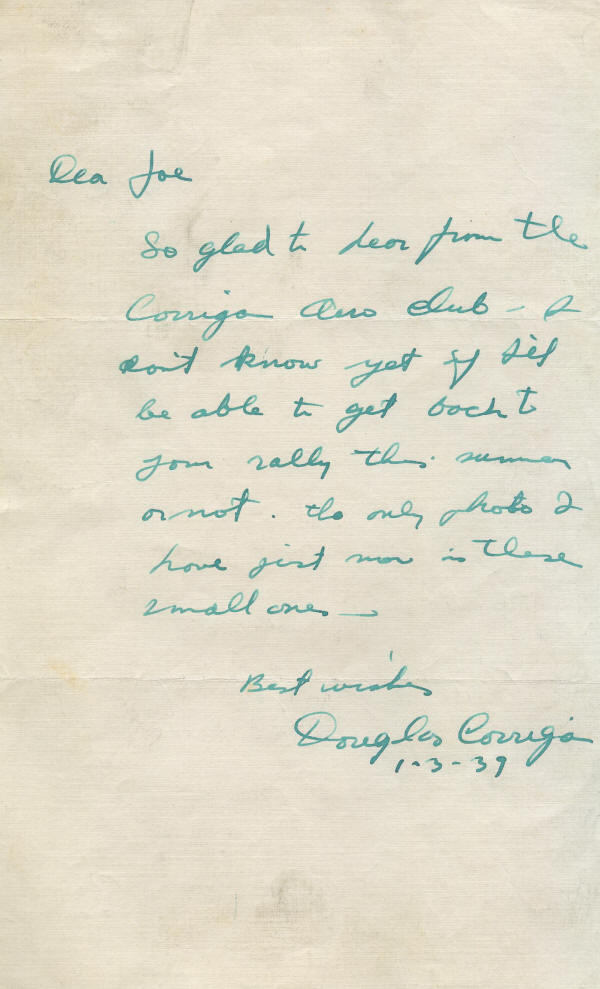 Dear Joe
So glad to hear from the
Corrigan Aero Club - I
don't know yet if I'll
be able to get back to
your rally this summer
or not. The only photo I
have just now is these
small ones —
Best wishes
Douglas Corrigan
1-3-39